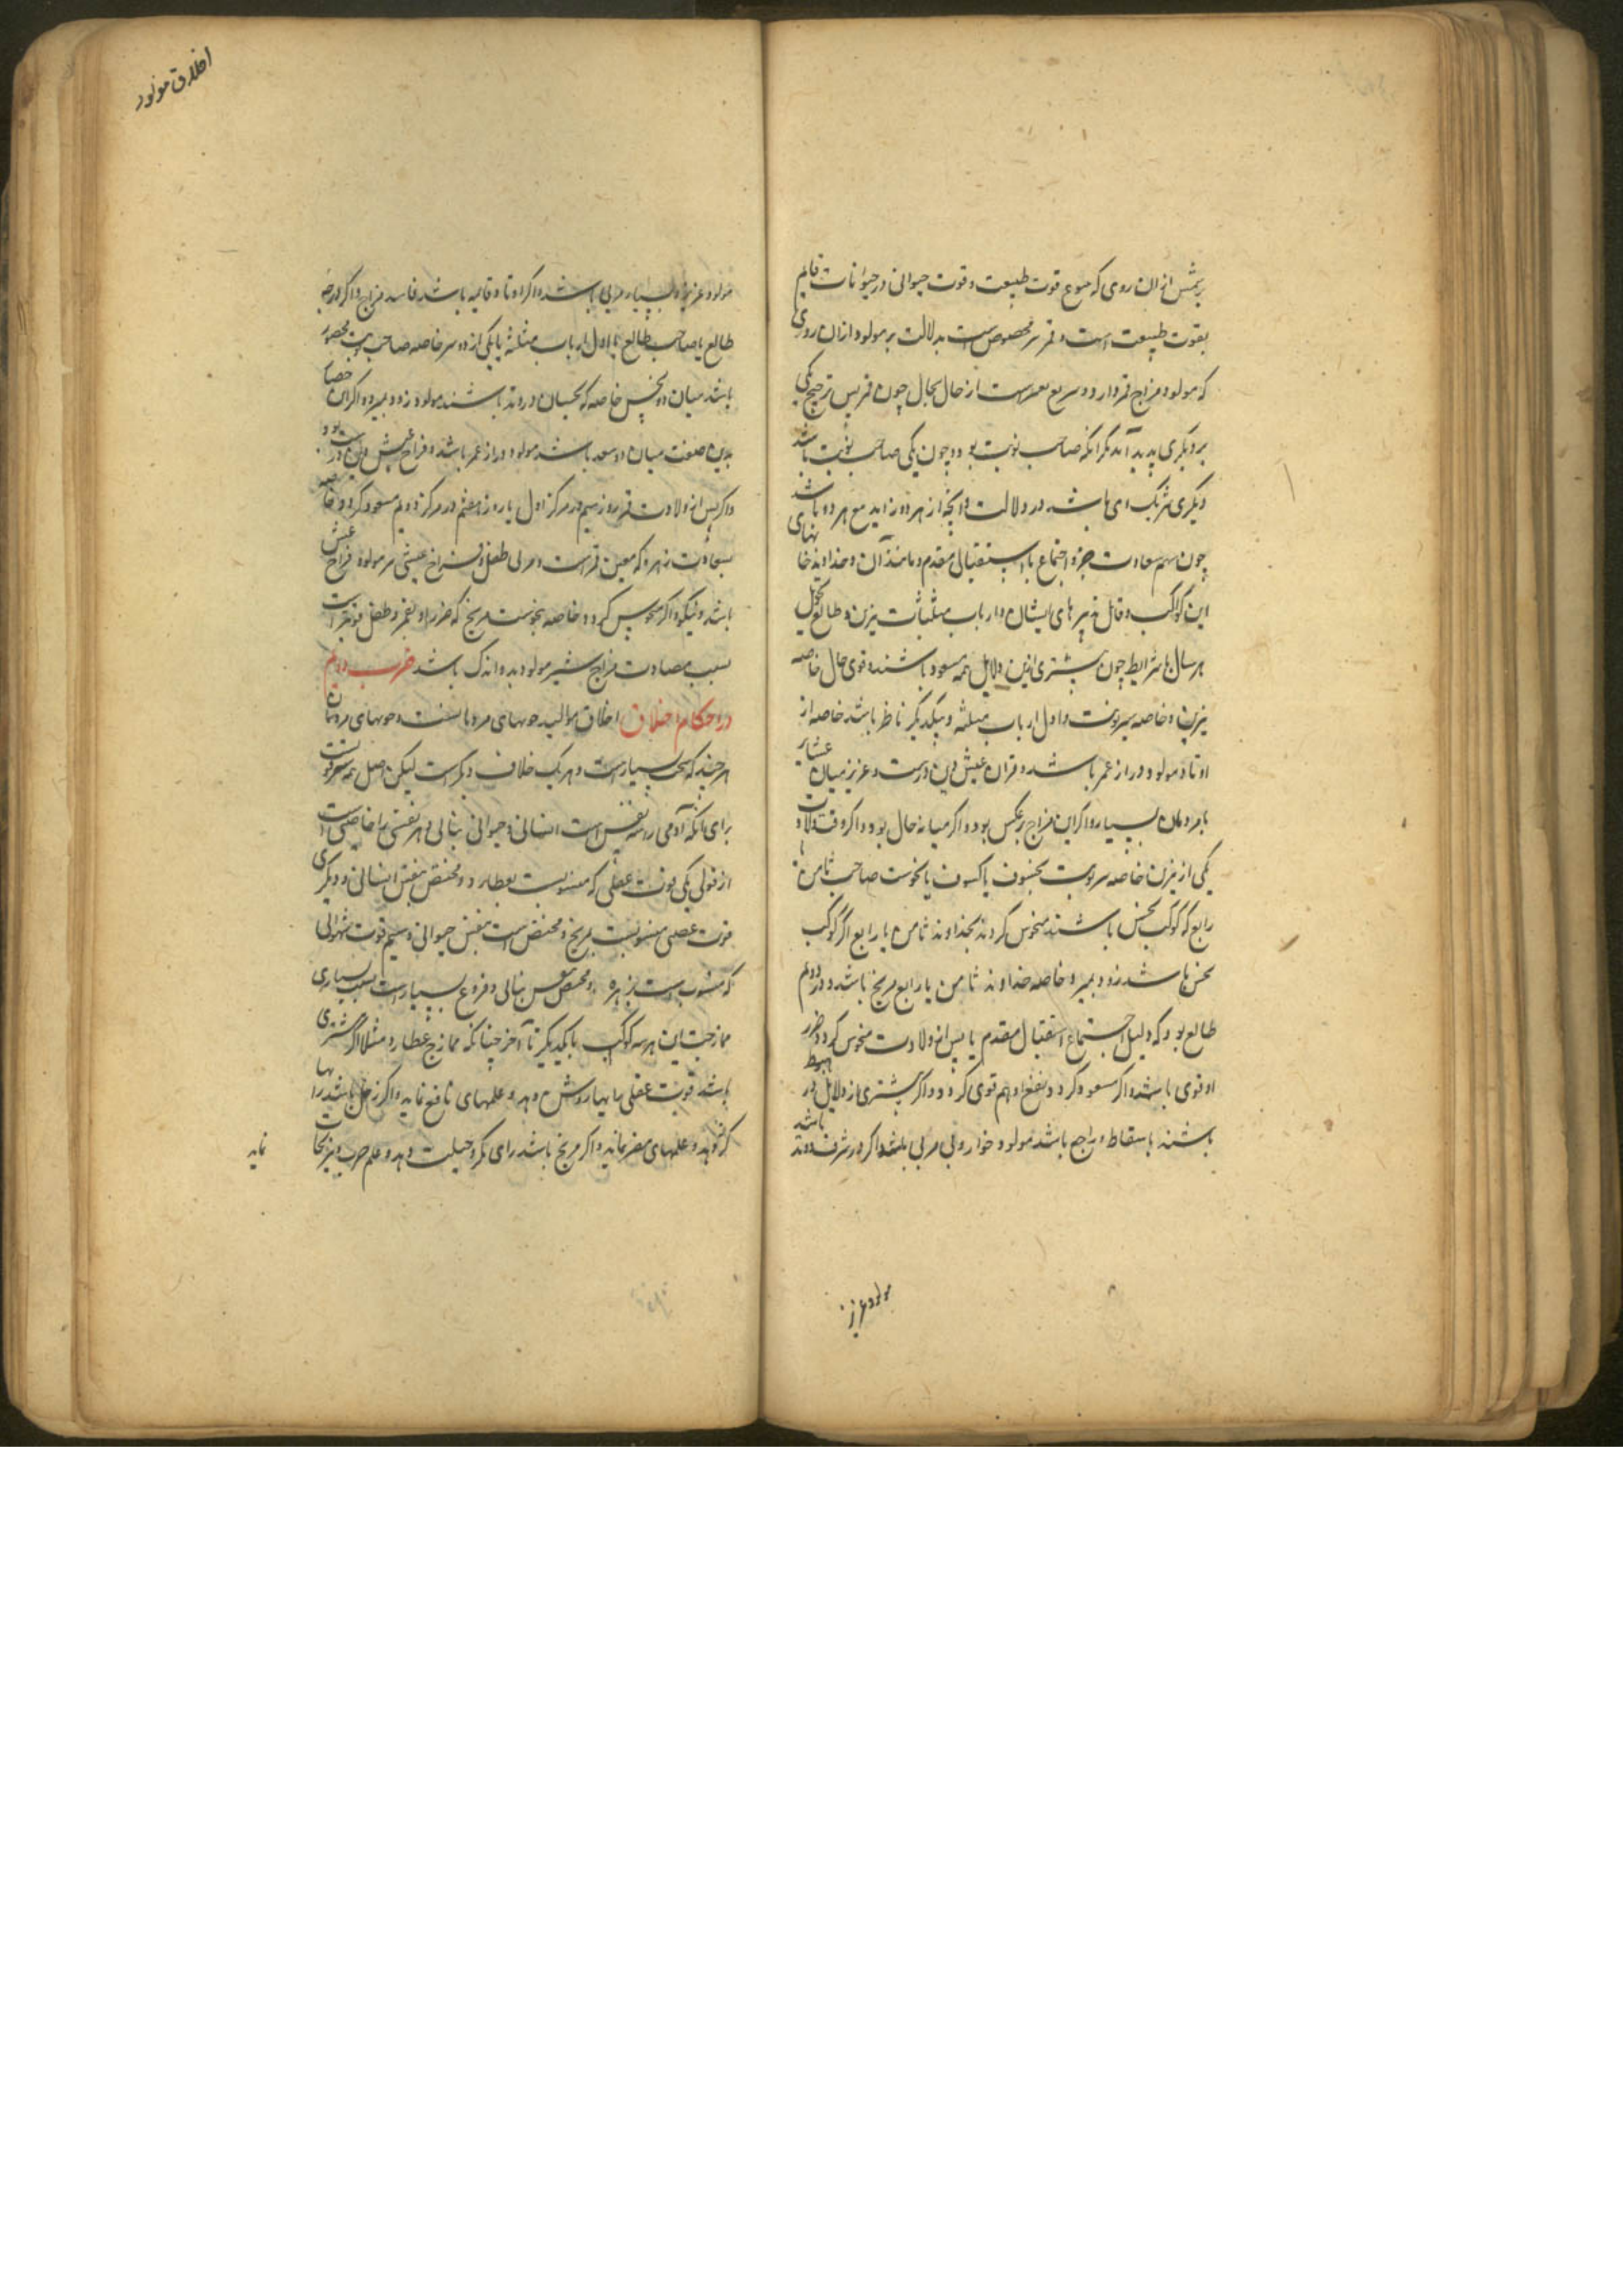 از ان روی که قوت طبیعت و قوت حیوانی در حیوانات قایم
بقوت طبیعت است و قمر مخصوص است بدلالت بر مولود ازان روی
که مولود مزاج قمر دارد و سریع است از حال بحال چون قمر پس ترجیح یکی
بر دیگری پدید آید مگر انکه صاحب نوبت بود و چون یکی صاحب نوبت باشد
دیگری شریک وی باشد در دلالت و انچه از هر دو زاید مع هر دو باشد
چون سهم سعادت و جزو اجتماع یا استقبال مقدم و مانند آن و خداوند خانهای
این کواکب و قابل تدبیرهای ایشان و ارباب مثلثات نیرین و طالع تحویل
هر سال با شرایط چون بیشتری ازین دلایل همه مسعود باشند و قوی حال خاصه
نیرین و خاصه نیر نوبت و اول ارباب مثلثه و بیکدیگر ناظر باشد خاصه از
اوتاد مولود دراز عمر باشد و فراخ عیش و تن درست و عزیز میان عشایر
با مردمان بسیار و اگر این مزاج برعکس بود و اگر میانه حال بود و اگر وقت ولادت
یکی از نیرین خاصه نیر نوبت بخسوف یا کسوف یا بنحوست صاحب ثامن یا
رابع که کوکب نحس باشند منحوس گردند بخداوند ثامن یا رابع اگر کوکب
نحس باشد زود بمیرد خاصه خداوند ثامن یا رابع مریخ باشد و در دوم
طالع بود که دلیل اجتماع استقبال مقدم یا پس از ولادت منحوس گردد و ضرر
او قوی باشد و اگر مسعود گردد و نفع او هم قوی گردد و اگر بیشتری از دلایل در هبوط
باشند یا سقاط و راجع باشد مولود خوار و بی مربی باشد و اگر در شرف و وتد باشد
مولود عزیز
اخلاق مولود
مولود عزیز و بسیار مربی باشد و اگر اوتاد قایمه باشد فاسد مزاج و اگر درجه
طالع یا صاحب طالع یا اول ارباب مثلثه یا یکی از دو نیر خاصه صاحب نوبت محصور
باشد میان دو نحس خاصه که نحسان در وتد باشند مولود زود بمیرد و اگر این حصار
بدین صفت میان دو سعد باشد مولود دراز عمر باشد و فراخ عیش و تن درست بود
و اگر پس از ولادت قمر روز سیم در مرکز اول یا روز هفتم در مرکز دویم مسعود گردد خاصه
بسعادت زهره که معین قمر است در مربی طفل و فراخ عیشی مر مولود فراخ عیش
باشد و نیکو و اگر منحوس گردد خاصه بنحوست مریخ که ضرر او بقمر و طفل قویتر است
بسبب مضادت مزاج شیر مولود بد و اندک باشد ضرب دویم
در احکام اخلاق اخلاق موالید خویهای مردمانست و خویهای مردمان
هر چند که سخت بسیار است و هر یک خلاف دیگر است لیکن اصل همه سه قوتست
برای انکه آدمی را سه نفس است انسانی و حیوانی و نباتی و هر نفسی را خاصیتی است
از قوتی یکی قوت عقلی که منسوبست بعطارد و مختص بنفس انسانی و دیگری
قوت غضبی منسوبست بمریخ و مختص است بنفس حیوانی و سیم قوت شهوانی
که منسوب است بزهره و مختص بنفس نباتی و فروع بسیار است بسبب بسیاری
ممازجت این هر سه کوکب با یکدیگر تا آخر چنانکه ممازج عطارد مثلا اگر مشتری
باشد قوت عقلی را بهار روشن دهد و علمهای نافع نماید و اگر زحل باشد رایها
کژ دهد و علمهای مضر نماید و اگر مریخ باشد رای مکر و حیلت دهد و علم حرب و نیرنجات
نماید